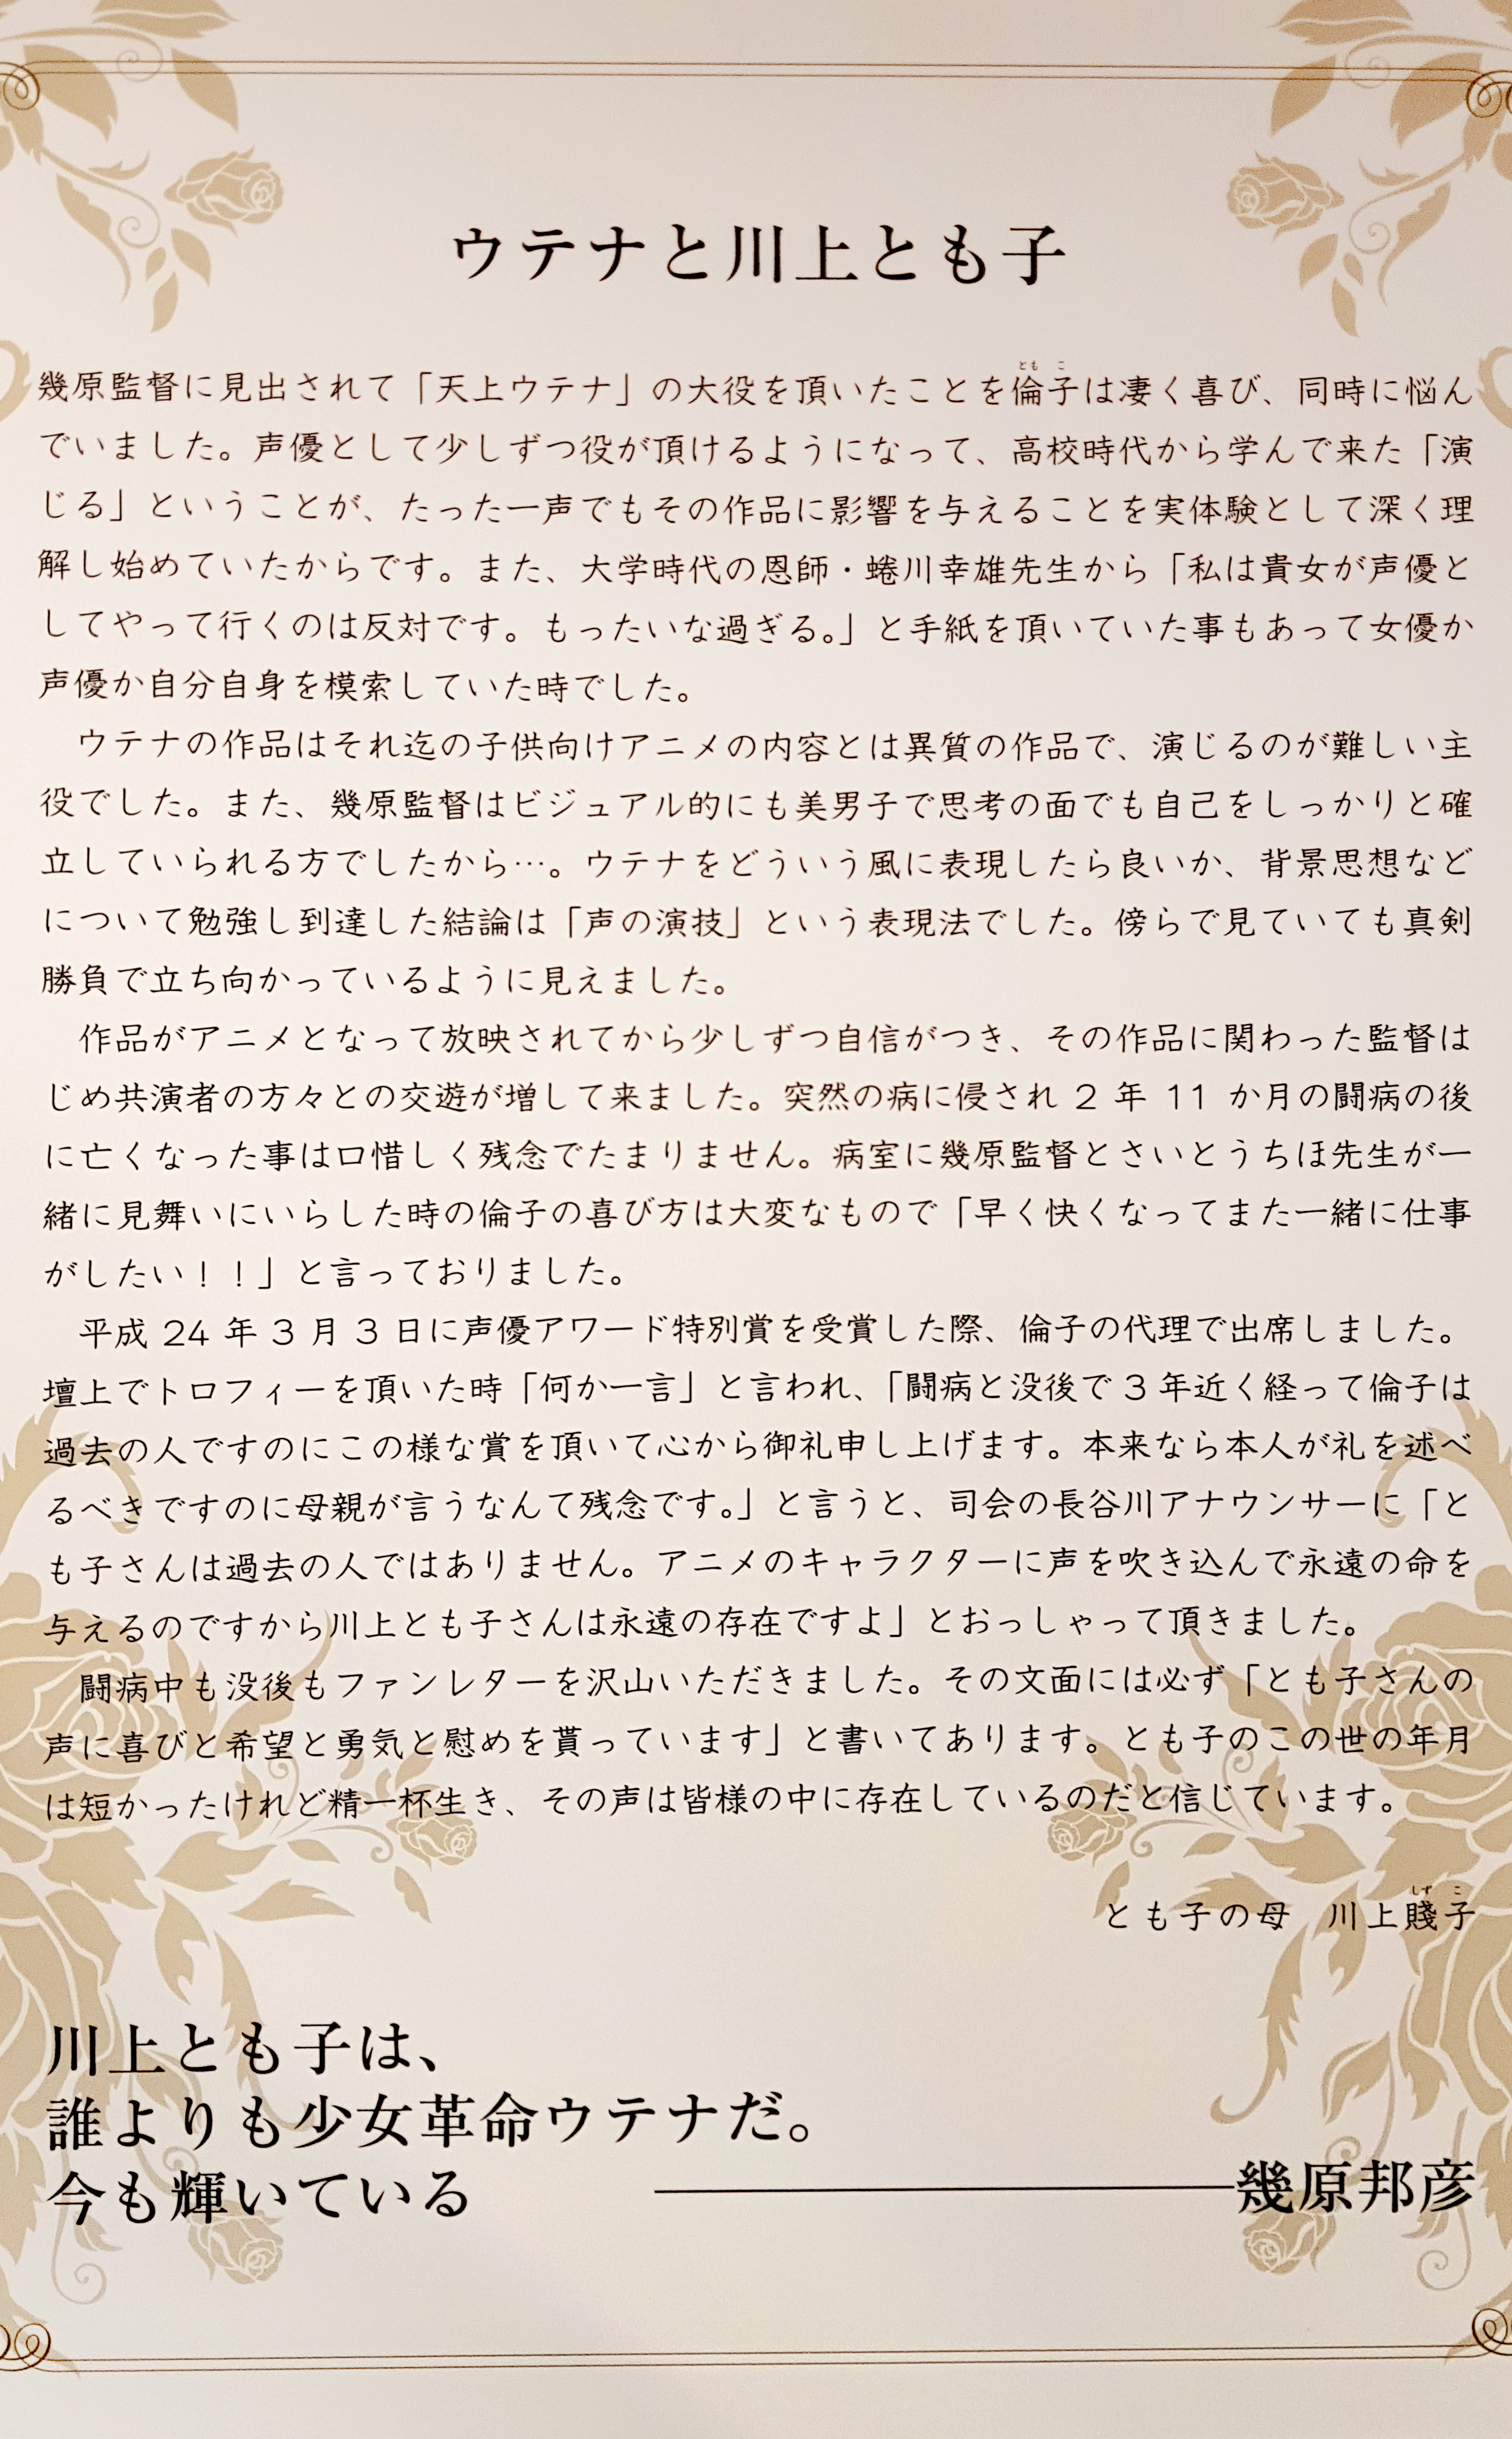 ウテナと川上とも子
幾原監督に見出されて「天上ウテナ」の大役を頂いたことを倫子は凄く喜び、同時に悩ん
とも こ
でいました。声優として少しずつ役が頂けるようになって、高校時代から学んで来た「演
じる」ということが、たった一声でもその作品に影響を与えることを実体験として深く理
解し始めていたからです。また、大学時代の恩師・蜷川幸雄先生から「私は貴女が声優と
してやって行くのは反対です。もったいな過ぎる。」と手紙を頂いていた事もあって女優か
声優か自分自身を模索していた時でした。
　ウテナの作品はそれ迄の子供向けアニメの内容とは異質の作品で、演じるのが難しい主
役でした。また、幾原監督はビジュアル的にも美男子で思考の面でも自己をしっかりと確
立していられる方でしたから…。ウテナをどういう風に表現したら良いか、背景思想など
について勉強し到達した結論は「声の演技」という表現法でした。傍らで見ていても真剣
勝負で立ち向かっているように見えました。
　作品がアニメとなって放映されてから少しずつ自信がつき、その作品に関わった監督は
じめ共演者の方々との交遊が増して来ました。突然の病に侵され 2 年 11 か月の闘病の後
に亡くなった事は口惜しく残念でたまりません。病室に幾原監督とさいとうちほ先生が一
緒に見舞いにいらした時の倫子の喜び方は大変なもので「早く快くなってまた一緒に仕事
がしたい！！」と言っておりました。
　平成 24 年 3 月 3 日に声優アワード特別賞を受賞した際、倫子の代理で出席しました。
壇上でトロフィーを頂いた時「何か一言」と言われ、「闘病と没後で 3 年近く経って倫子は
過去の人ですのにこの様な賞を頂いて心から御礼申し上げます。本来なら本人が礼を述べ
るべきですのに母親が言うなんて残念です。」と言うと、司会の長谷川アナウンサーに「と
も子さんは過去の人ではありません。アニメのキャラクターに声を吹き込んで永遠の命を
与えるのですから川上とも子さんは永遠の存在ですよ」とおっしゃって頂きました。
　闘病中も没後もファンレターを沢山いただきました。その文面には必ず「とも子さんの
声に喜びと希望と勇気と慰めを貰っています」と書いてあります。とも子のこの世の年月
は短かったけれど精一杯生き、その声は皆様の中に存在しているのだと信じています。
とも子の母　川上賤子
しず こ
川上とも子は、
誰よりも少女革命ウテナだ。
今も輝いている ――――――幾原邦彦